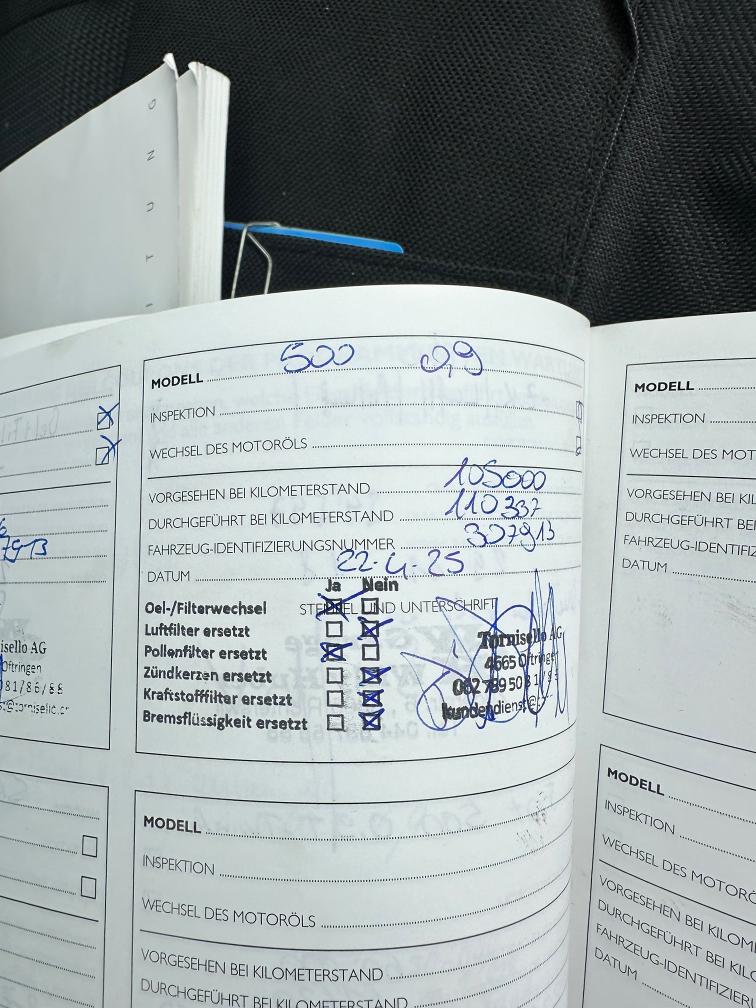 I T U N G
MODELL 500 0,9
INSPEKTION
WECHSEL DES MOTORÖLS
VORGESEHEN BEI KILOMETERSTAND 105000
DURCHGEFÜHRT BEI KILOMETERSTAND 110337
FAHRZEUG-IDENTIFIZIERUNGSNUMMER 307913
DATUM 22-4-25
Ja Nein
STEMPEL UND UNTERSCHRIFT
Oel-/Filterwechsel
Luftfilter ersetzt
Pollenfilter ersetzt
Zündkerzen ersetzt
Kraftstofffilter ersetzt
Bremsflüssigkeit ersetzt
Tornisello AG
4665 Oftringen
kundendienst@
MODELL
INSPEKTION
WECHSEL DES MOTORÖLS
VORGESEHEN BEI KILOMETERSTAND
DURCHGEFÜHRT BEI KILOMETERSTAND
isello AG
Oftringen
MODELL
INSPEKTION
WECHSEL DES MOT
VORGESEHEN BEI KIL
DURCHGEFÜHRT BEI
FAHRZEUG-IDENTIFIZ
DATUM
MODELL
INSPEKTION
WECHSEL DES MOTORÖ
VORGESEHEN BEI KILOM
DURCHGEFÜHRT BEI KIL
FAHRZEUG-IDENTIFIZI
DATUM